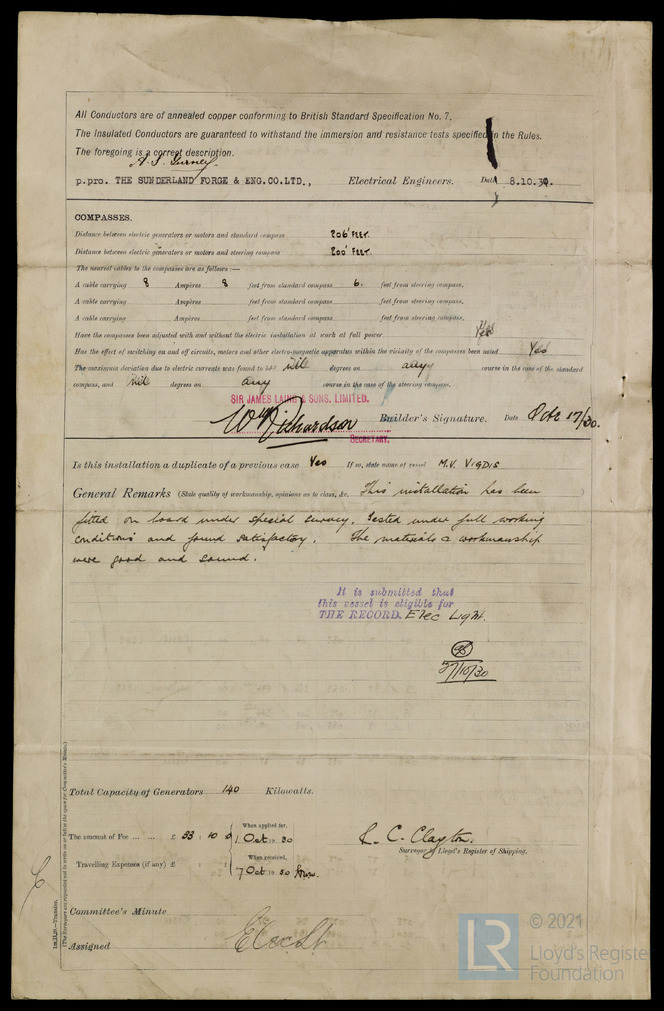 All Conductors are of annealed copper conforming to British Standard Specification No. 7.
The Insulated Conductors are guaranteed to withstand the immersion and resistance tests specified in the Rules.
The foregoing is a correct description.
A. J. Gurney
p.pro. THE SUNDERLAND FORGE & ENG.CO.LTD., Electrical Engineers. Date 8.10.30.
COMPASSES.
Distance between electric generators or motors and standard compass 206' FEET.
Distance between electric generators or motors and steering compass 200' FEET.
The nearest cables to the compasses are as follows:—
A cable carrying 8 Ampères 8 feet from standard compass 6. feet from steering compass.
A cable carrying Ampères feet from standard compass feet from steering compass.
A cable carrying Ampères feet from standard compass feet from steering compass.
Have the compasses been adjusted with and without the electric installation at work at full power Yes
Has the effect of switching on and off circuits, motors and other electro-magnetic apparatus within the vicinity of the compasses been noted Yes
The maximum deviation due to electric currents was found to be nil degrees on any course in the case of the standard
compass, and nil degrees on any course in the case of the steering compass.
SIR JAMES LAING & SONS. LIMITED.
Wm Richardson Builder's Signature. Date Octr 17/30.
SECRETARY.
Is this installation a duplicate of a previous case Yes If so, state name of vessel M.V. VIGDIS
General Remarks (State quality of workmanship, opinions as to class, &c. This installation has been )
fitted on board under special survey, tested under full working
conditions and found satisfactory. The materials & workmanship
were good and sound.
It is submitted that
this vessel is eligible for
THE RECORD. Elec Light.
27/10/30
Total Capacity of Generators 140 Kilowatts.
The amount of Fee ... ... £ 33 : 10 : 0 When applied for, 1 Oct 19 30
R. C. Clayton.
Surveyor to Lloyd's Register of Shipping.
Travelling Expenses (if any) £ : : When received, 7 Oct 19 30
Committee's Minute
Assigned Elec Lt
(The Surveyors are requested not to write on or below the space for Committee's Minute.)
© 2021
LR
Lloyd's Register
Foundation